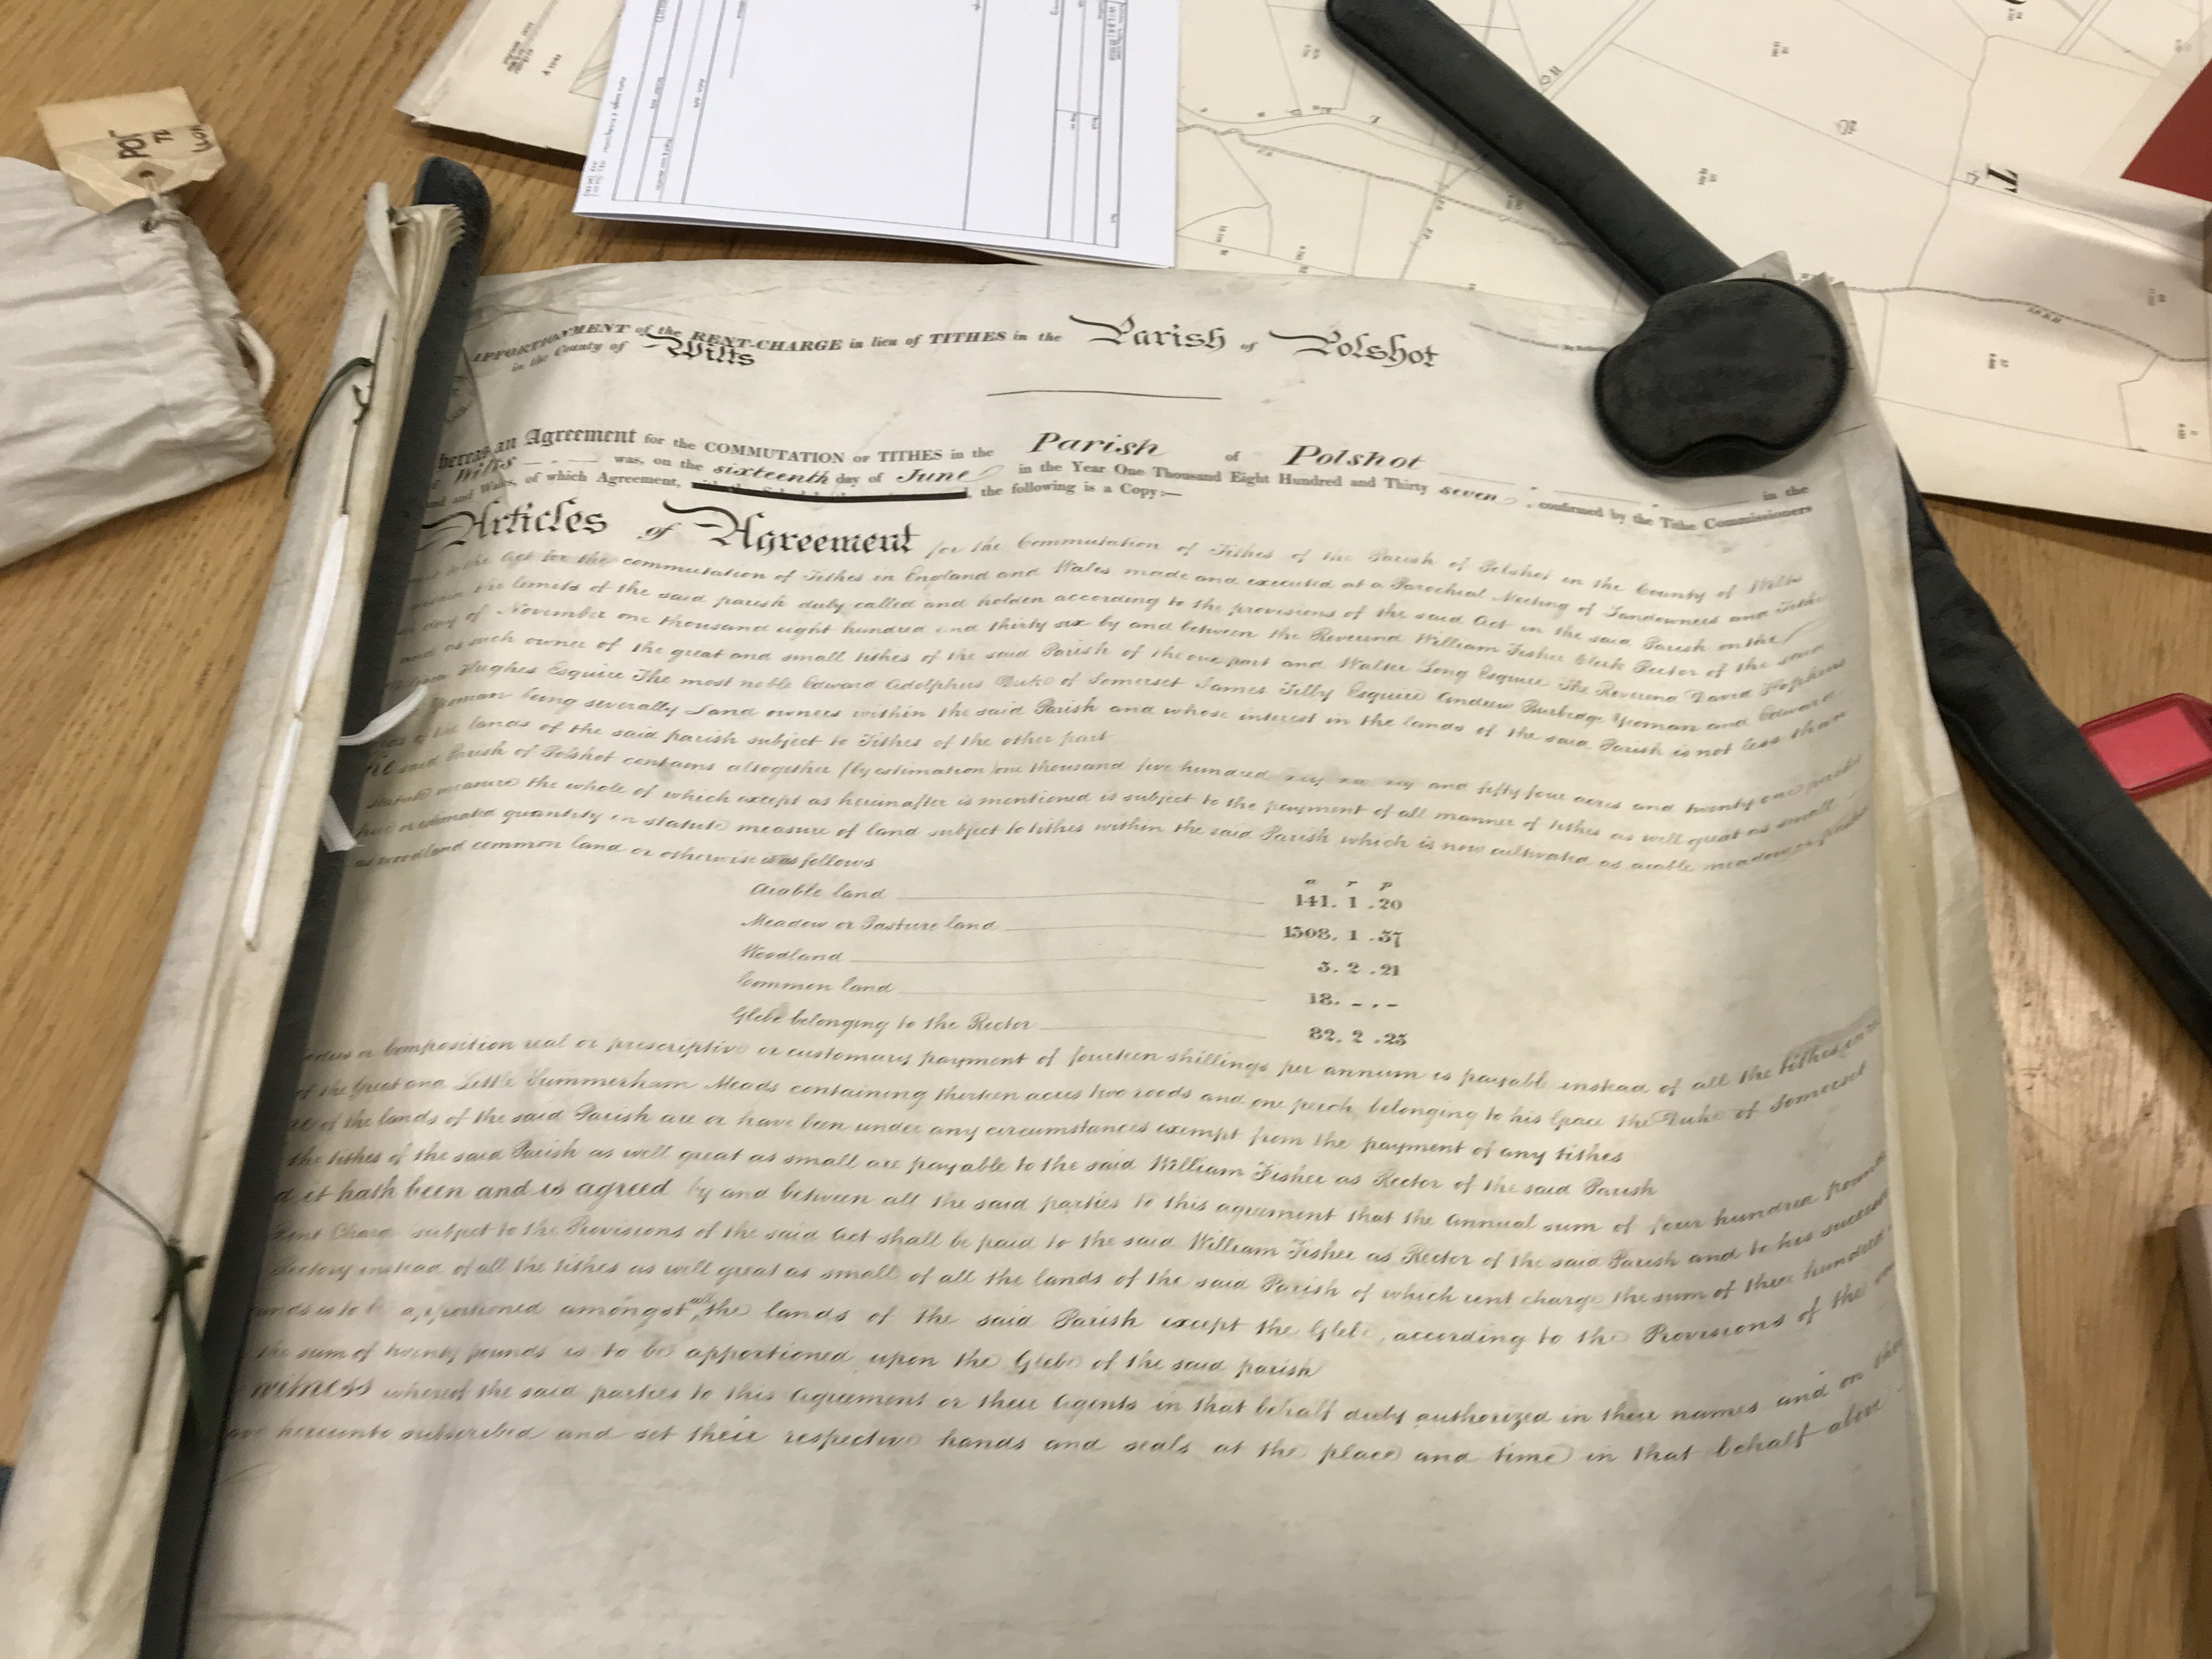 POT
TE
APPORTIONMENT of the RENT-CHARGE in lieu of TITHES in the Parish of Polshot
in the County of Wilts
hereas an Agreement for the COMMUTATION OF TITHES in the Parish of Polshot in the
of Wilts was, on the sixteenth day of June in the Year One Thousand Eight Hundred and Thirty seven, confirmed by the Tithe Commissioners
and Wales, of which Agreement, the following is a Copy:—
Articles of Agreement for the Commutation of Tithes of the Parish of Polshot in the County of Wilts
to the Act for the commutation of Tithes in England and Wales made and executed at a Parochial Meeting of Landowners and Tithe
within the limits of the said parish duly called and holden according to the provisions of the said Act in the said Parish on the
day of November one thousand eight hundred and thirty six by and between the Reverend William Fisher Clerk Rector of the said
and as such owner of the great and small tithes of the said Parish of the one part and Walter Long Esquire The Reverend David Hopkins
Hughes Esquire The most noble Edward Adolphus Duke of Somerset James Tilly Esquire Andrew Burbidge Yeoman and Edward
Yeoman being severally Land owners within the said Parish and whose interest in the lands of the said Parish is not less than
of the lands of the said parish subject to Tithes of the other part
said Parish of Polshot contains altogether (by estimation) one thousand five hundred and fifty four acres and twenty one perches
statute measure the whole of which except as hereinafter is mentioned is subject to the payment of all manner of tithes as well great as small
or estimated quantity in statute measure of land subject to tithes within the said Parish which is now cultivated as arable meadow or pasture
as woodland common land or otherwise is as follows
a r p
Arable land 141. 1 .20
Meadow or Pasture land 1308. 1 .37
Woodland 3. 2 .21
Common land 18. - . -
Glebe belonging to the Rector 82. 2 .23
or Composition real or prescriptive or customary payment of fourteen shillings per annum is payable instead of all the tithes
of the Great and Little Cummerham Meads containing thirteen acres two roods and one perch belonging to his Grace the Duke of Somerset
of the lands of the said Parish are or have been under any circumstances exempt from the payment of any tithes
the tithes of the said Parish as well great as small are payable to the said William Fisher as Rector of the said Parish
d it hath been and is agreed by and between all the said parties to this agreement that the annual sum of four hundred pounds
Rent Charge subject to the Provisions of the said Act shall be paid to the said William Fisher as Rector of the said Parish and to his
Rectory instead of all the tithes as well great as small of all the lands of the said Parish of which rent charge the sum of three hundred
is to be apportioned amongst all the lands of the said Parish except the Glebe, according to the Provisions of the
the sum of twenty pounds is to be apportioned upon the Glebe of the said parish
witness whereof the said parties to this Agreement or their Agents in that behalf duly authorized in their names and on
hereunto subscribed and set their respective hands and seals at the place and time in that behalf above